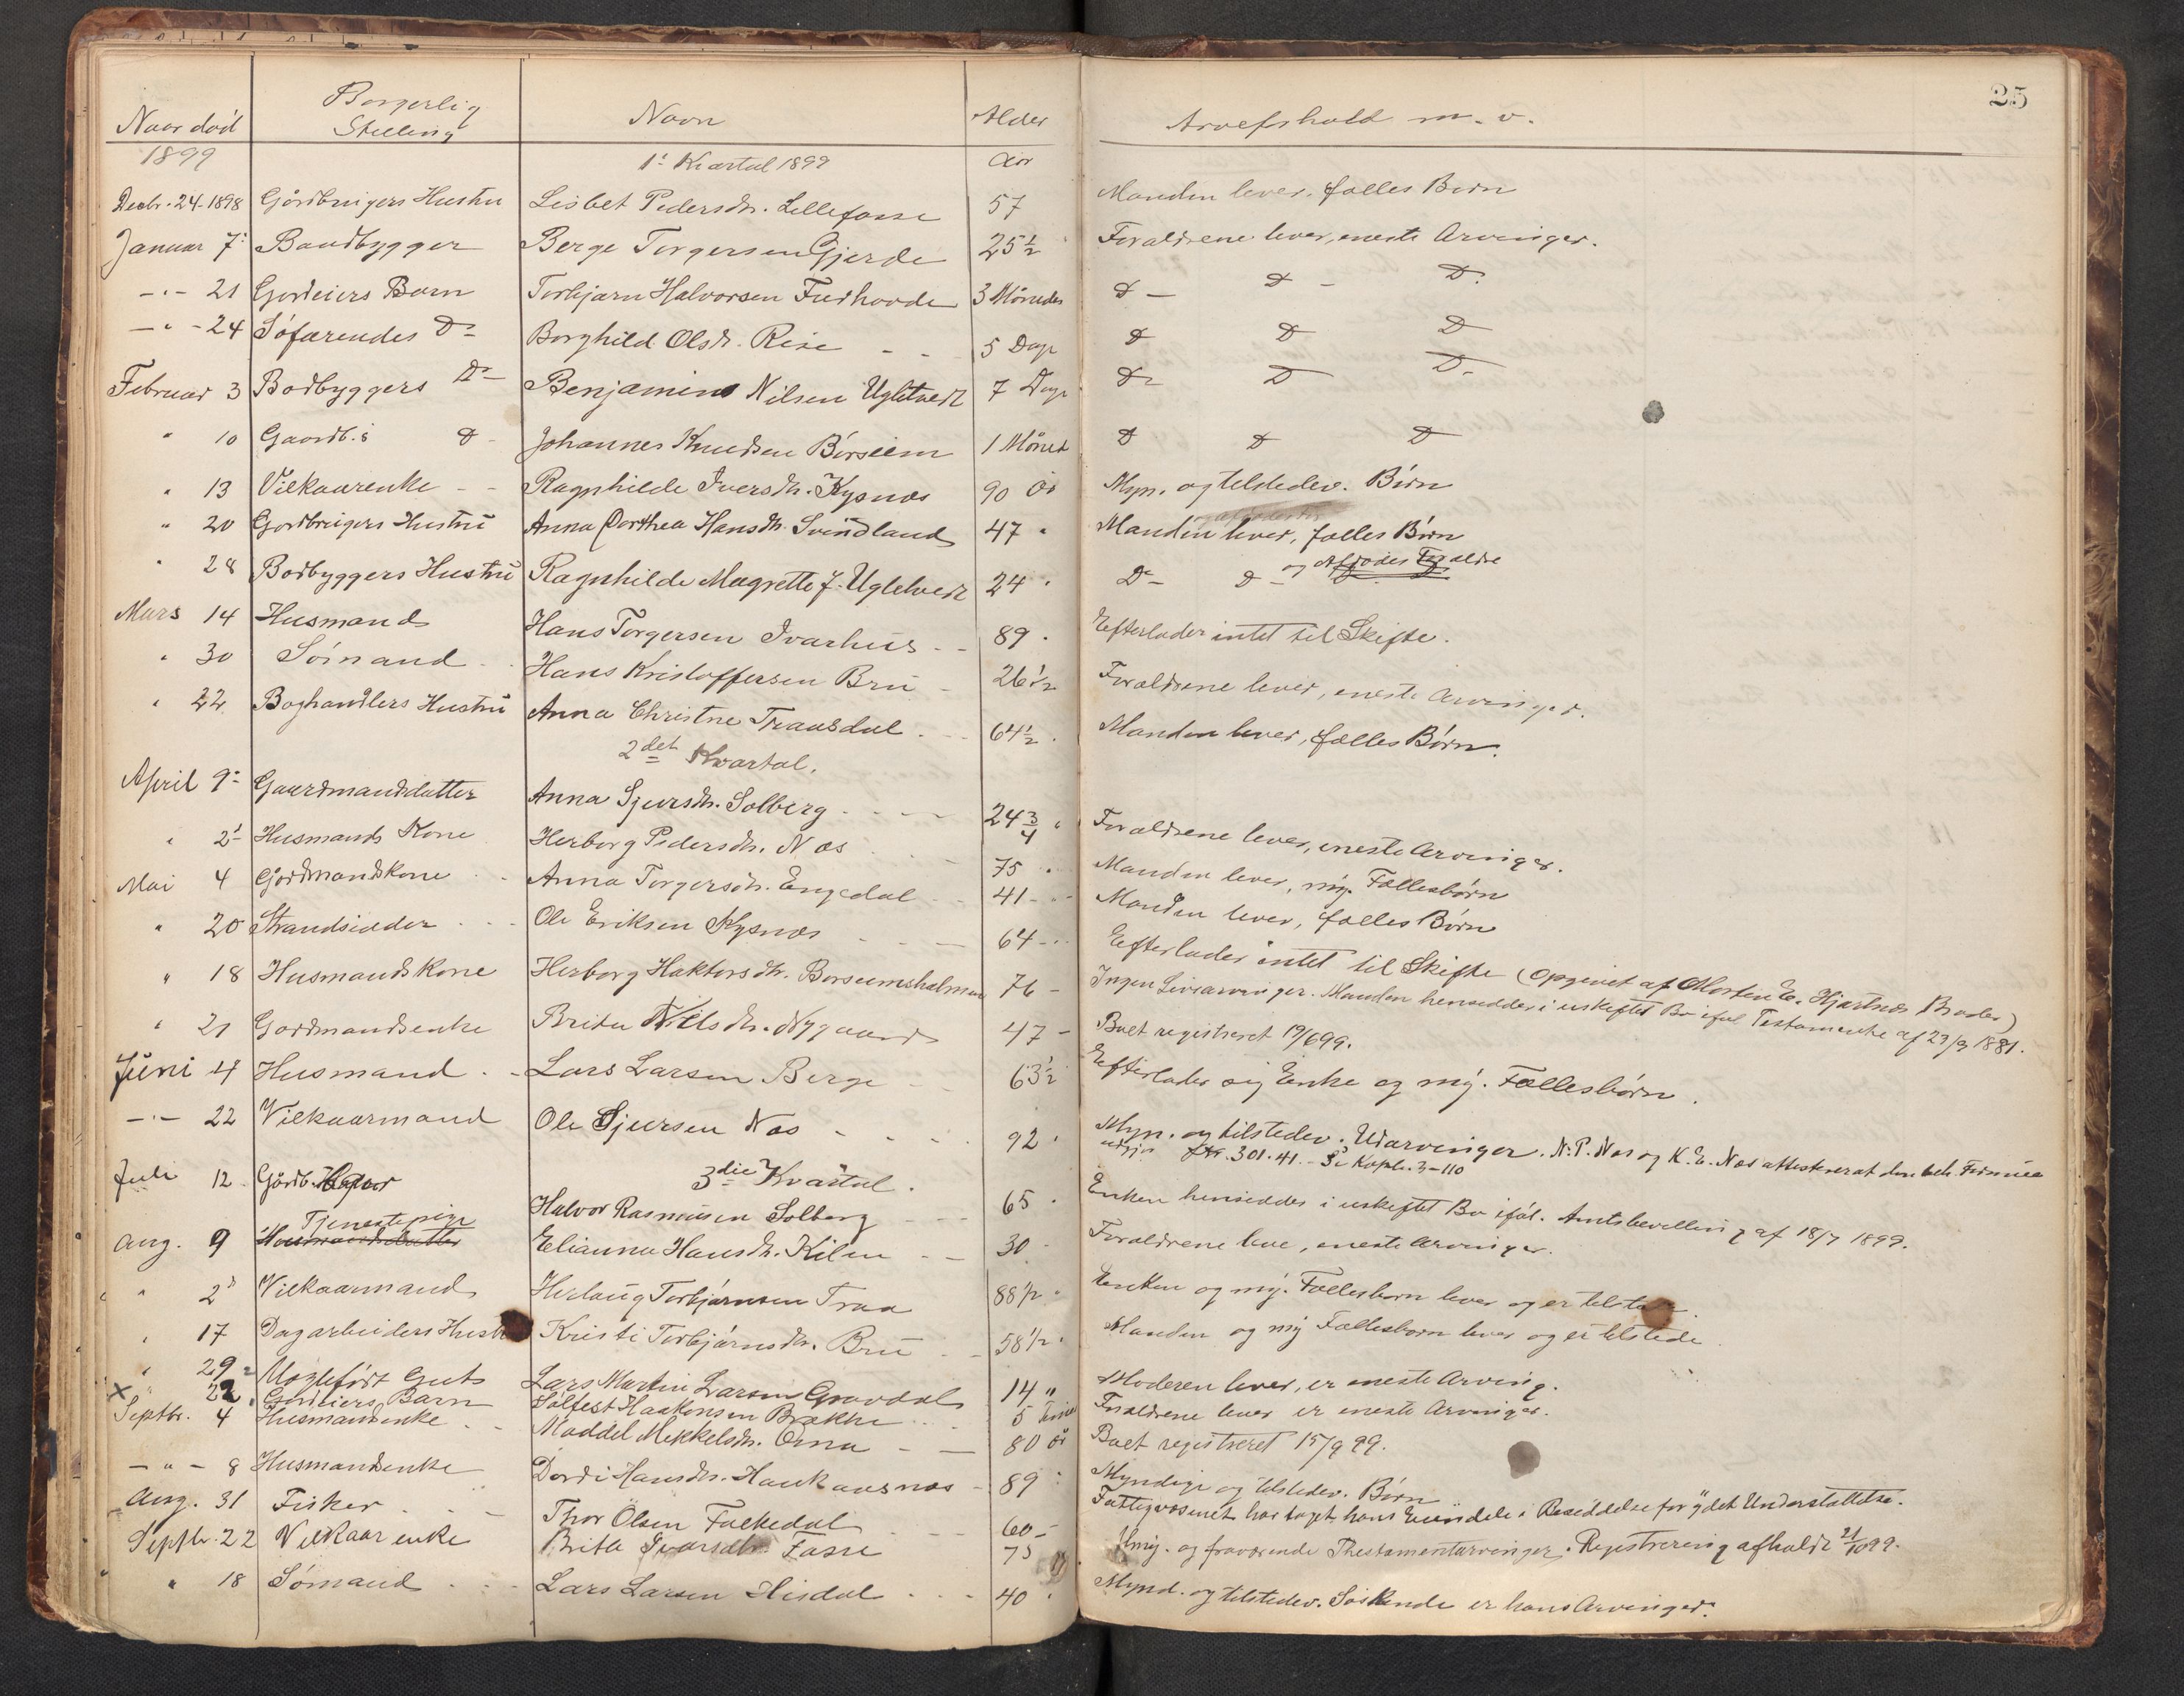 25
Naar død | Borgerlig Stilling | Navn | Alder | Arvefshold m. v.
1899 | 1ᵗ Kvartal 1899 | Aar
Decbr. 24-1898 | Gårdbrugers Hustru | Lisbet Pedersdtr. Lillefosse | 57 | Manden lever, fælles Børn
Januar 7 | Baadbygger | Berge Torgersen Gjerde | 25½ | Forældrene lever, eneste Arvinger.
-"- 21 | Gårdeiers Barn | Torbjørn Halvorsen Fuehovde | 3 Måneder | Do Do Do
-"- 24 | Søfarendes Do | Borghild Olsdr. Rise | 5 Dage | Do Do Do
Februar 3 | Bødbyggers Do | Benjamin Nilsen Ugletvedt | 7 Dage | Do Do Do
" 10 | Gaardb.s Do | Johannes Knudsen Børseim | 1 Måned | Do Do Do
" 13 | Vilkaarenke | Ragnhilde Iversdtr. Kysnæs | 90 år | Myn. og tilstedev. Børn
" 20 | Gårdbrugers Hustru | Anna Dorthea Hansdtr. Svindland | 47 " | Manden lever, fælles Børn
" 28 | Bødbyggers Hustru | Ragnhilde Magrette J. Ugletvedt | 24 " | Do Do og Afdødes Forældre
Mars 14 | Husmand | Hans Torgersen Ivarhus | 89 " | Efterlader intet til Skifte.
" 30 | Sømand | Hans Kristoffersen Bru | 26½ | Forældrene lever, eneste Arvinger.
" 22 | Boghandlers Hustru | Anna Christne Traasdal | 64½ " | Manden lever, fælles Børn.
2det Kvartal.
April 9 | Gaardmandsdatter | Anna Sjursdtr. Solberg | 24¾ " | Forældrene lever, eneste Arvinger.
" 2 | Husmands Kone | Herborg Pedersdtr. Næs | 75 " | Manden lever, mÿ. Fællesbørn
Mai 4 | Gårdmandskone | Anna Torgersdtr. Engedal | 41 " | Manden lever, fælles Børn
" 20 | Strandsidder | Ole Eriksen Kysnæs | 64 " | Efterlader intet til Skifte (opgivet af Morten E. Hjartnæs Broder)
" 18 | Husmandskone | Herborg Haktorsdtr. Børseimsholmen | 76 - | Ingen Livsarvinger. Manden hensidder i uskiftet Bo iføl Testamente af 23/9 1881.
" 21 | Gårdmandsenke | Brita Nilsdtr. Nygaard | 47 - | Boet registreret 19/6 99.
Juni 4 | Husmand | Lars Larsen Berge | 63½ | Efterlader sig Enke og mÿ. Fællesbørn.
-"- 22 | Vilkaarmand | Ole Sjursen Næs | 92 " | Myn. og tilstedev. Udarvinger. N. P. Næs og K. E. Næs attesterer at den beh. Formue
udgjør Kr. 301.41. - Se Kopb. 3-110
3die Kvartal.
Juli 12 | Gårdb. | Halvor Rasmusen Solberg | 65 " | Enken hensiddes i uskiftet Bo iføl. Amtsbevilling af 18/7 1899.
Aug. 9 | Tjenestepige | Elianna Hansdtr. Kilen | 30 - | Forældrene leve, eneste Arvinger.
" 2 | Vilkaarmand | Herlaug Torbjørnsen Traa | 88½ " | Enken og mÿ. Fællesbørn lever og er tilstede.
" 17 | Dagarbeiders Hustru | Kristi Torbjørnsdtr. Bru | 58½ " | Manden og mÿ Fællesbørn lever og er tilstede.
" 29 | Uægteført Gut | Lars Martin Larsen Gravdal | 14 " | Moderen lever, er eneste Arving.
× " 22 | Gårdeiers Barn | Solfest Haakensen Brække | 5 Timer | Forældrene lever er eneste Arvinger.
Septbr. 4 | Husmandenke | Maddel Mikkelsdtr. Oma | 80 år | Boet registreret 15/9 99.
-"- 8 | Husmandenke | Dordi Hansdtr. Haukaasnæs | 89 | Myndige og tilstedev. Børn
Aug. 31 | Fisker | Thor Olsen Folkedal | 60 - | Fattigvæsenet har taget hans Eiendele i Besiddelse for ydet Understøttelse.
Septbr. 22 | Vilkaarenke | Brita Ivarsdtr. Fosse | 75 | Umÿ. og fraværende Thestamentarvinger. Registrering afholdt 21/10 99.
" 18 | Sømand | Lars Larsen Hisdal | 40 " | Mynd. og tilstedev. Søskende er hans Arvinger.